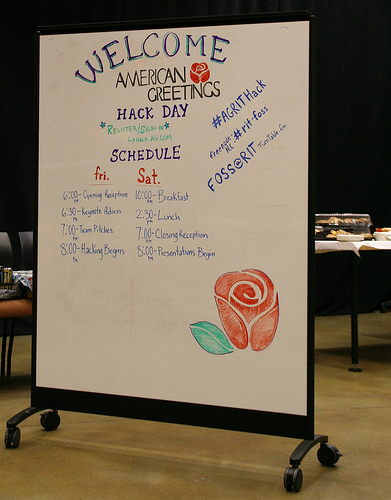 WELCOME
AMERICAN
GREETINGS
HACK DAY
*REGISTER/SIGN-IN*
SCHEDULE
#AGRITHack
Freenode
IRC: #rit-foss
FOSS@RIT TurnTable.fm
fri.
6:00 - Opening Reception
PM
6:30 - Keynote Address
PM
7:00 - Team Pitches
PM
8:00 - Hacking Begins
PM
Sat.
10:00 - Breakfast
AM
2:30 - Lunch
PM
7:00 - Closing Reception
PM
8:00 - Presentations Begin
PM